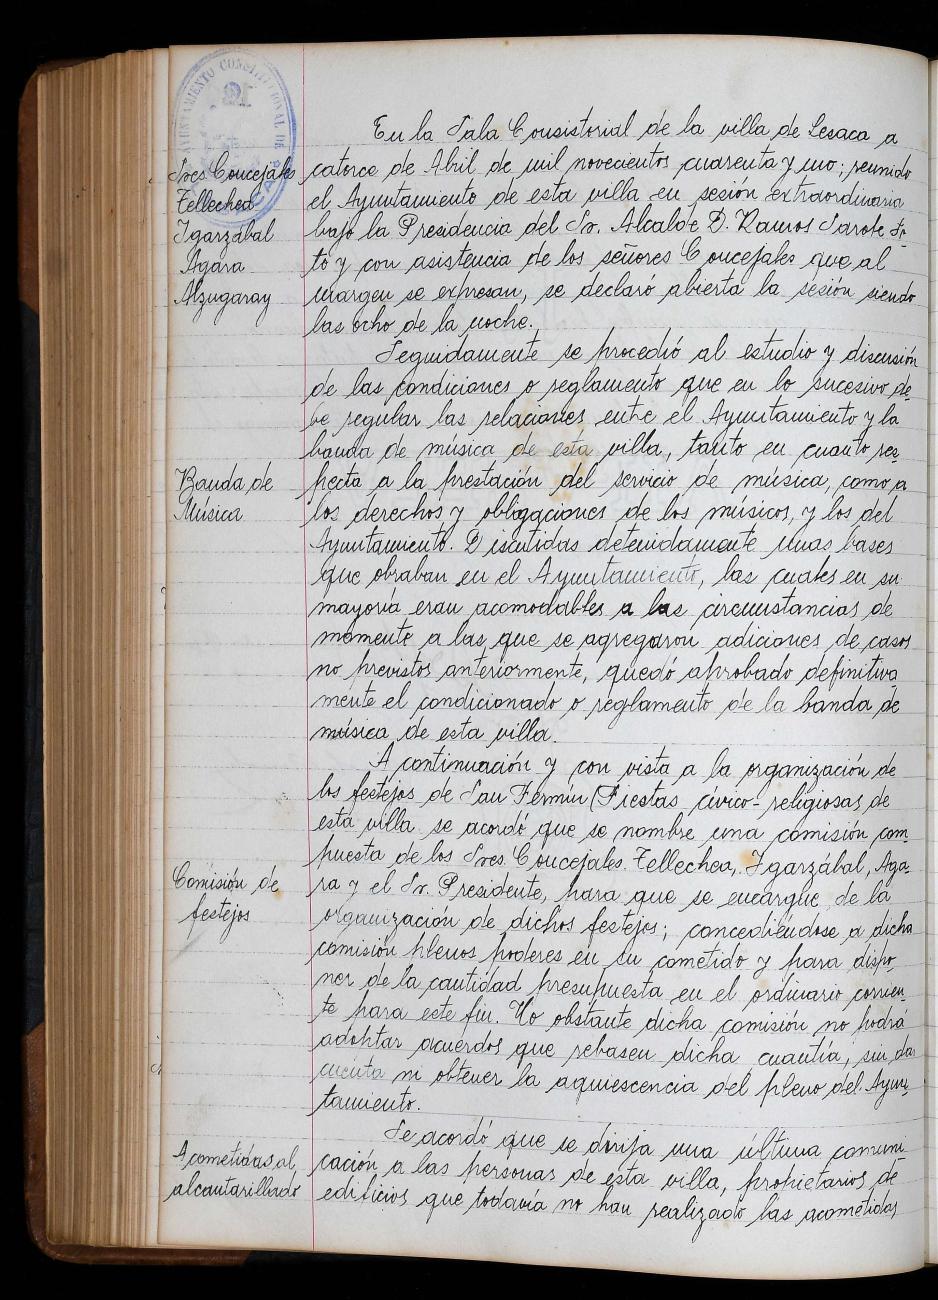 AYUNTAMIENTO CONSTITUCIONAL DE
Sres Concejales
Tellechea
Igarzábal
Agara
Alzugaray
En la Sala Consistorial de la villa de Lesaca a
catorce de Abril de mil novecientos cuarenta y uno; reunido
el Ayuntamiento de esta villa en sesión extraordinaria
bajo la Presidencia del Sr. Alcalde D. Ramos Sarote
to y con asistencia de los señores Concejales que al
margen se expresan, se declaró abierta la sesión siendo
las ocho de la noche.
Seguidamente se procedió al estudio y discusión
de las condiciones o reglamento que en lo sucesivo de-
be regular las relaciones entre el Ayuntamiento y la
banda de música de esta villa, tanto en cuanto res-
Banda de
Música
pecta a la prestación del servicio de música, como a
los derechos y obligaciones de los músicos, y los del
Ayuntamiento. Discutidas detenidamente unas bases
que obraban en el Ayuntamiento, las cuales en su
mayoría eran acomodables a las circunstancias de
momento a las que se agregaron adiciones de casos
no previstos anteriormente, quedó aprobado definitiva
mente el condicionado o reglamento de la banda de
música de esta villa.
A continuación y con vista a la organización de
los festejos de San Fermín (Fiestas cívico-religiosas de
esta villa se acordó que se nombre una comisión com
puesta de los Sres. Concejales. Tellechea, Igarzábal, Aga-
Comisión de
festejos
ra y el Sr. Presidente, para que se encargue de la
organización de dichos festejos; concediéndose a dicha
comisión plenos poderes en su cometido y para dispo-
ner de la cantidad presupuesta en el ordinario corrien-
te para este fin. No obstante dicha comisión no podrá
adoptar acuerdos que rebasen dicha cuantía, sin dar
cuenta ni obtener la aquiescencia del pleno del Ayun-
tamiento.
Se acordó que se dirija una última comuni
Acometidas al
alcantarillado
cación a las personas de esta villa, propietarios de
edificios que todavía no han realizado las acometidas